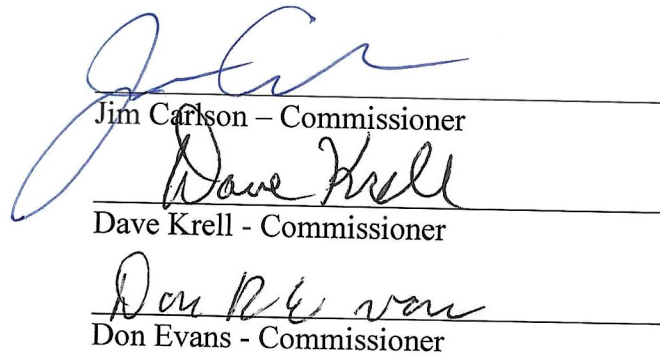 Jim Carlson – Commissioner
Dave Krell
Dave Krell - Commissioner
Don R Evans
Don Evans - Commissioner